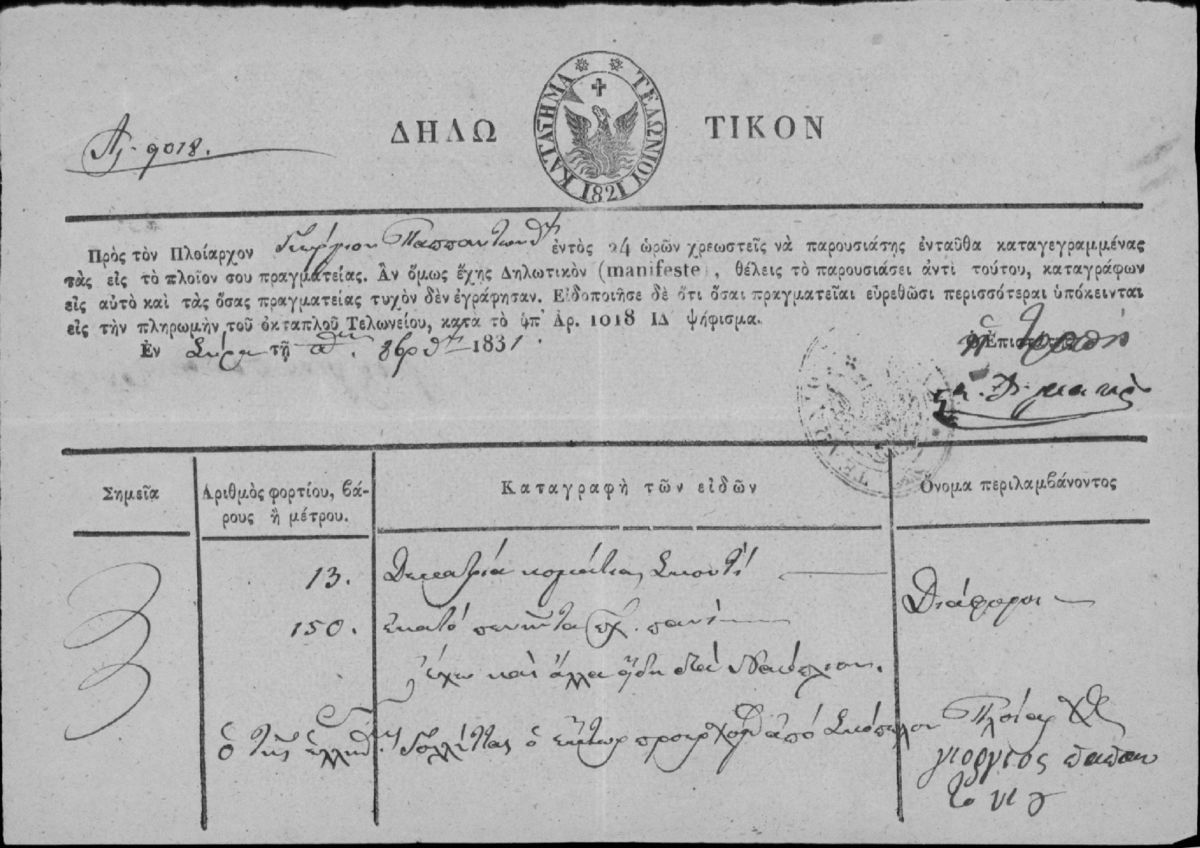 Ἀρ. 9018.
ΔΗΛΩ ΤΙΚΟΝ
ΚΑΤΑΣΤΗΜΑ ΤΕΛΩΝΙΟΥ 1821
Πρὸς τὸν Πλοίαρχον Γεώργιον Παππαντων ἐντὸς 24 ὡρῶν χρεωστεῖς νὰ παρουσιάσῃς ἐνταῦθα καταγεγραμμένας
τὰς εἰς τὸ πλοῖον σου πραγματείας. Ἂν ὅμως ἔχῃς Δηλωτικὸν (manifeste), θέλεις τὸ παρουσιάσει ἀντὶ τούτου, καταγράφων
εἰς αὐτὸ καὶ τὰς ὅσας πραγματείας τυχὸν δὲν ἐγράφησαν. Εἰδοποιῆσε δὲ ὅτι ὅσαι πραγματεῖαι εὑρεθῶσι περισσότεραι ὑπόκεινται
εἰς τὴν πληρωμὴν τοῦ ὀκταπλοῦ Τελωνείου, κατὰ τὸ ὑπ' Ἀρ. 1018 ΙΔ ψήφισμα.
Ἐν Σύρᾳ τῇ 8βρ 1831.
Σημεῖα
Ἀριθμὸς φορτίου, βά-
ρους ἢ μέτρου.
Καταγραφὴ τῶν εἰδῶν
Ὄνομα περιλαμβάνοντος
13. Δεκατρία κομάτια
Διάφοροι
150. ἑκατό πενῆντα πχ. πανί
ἔχω καὶ ἄλλα ἤδη διά Ναύπλιον.
ὁ τῆς ἀπό Σκόπελον Πλοίαρχος
γιοργιος παπαν
το νι ȣ